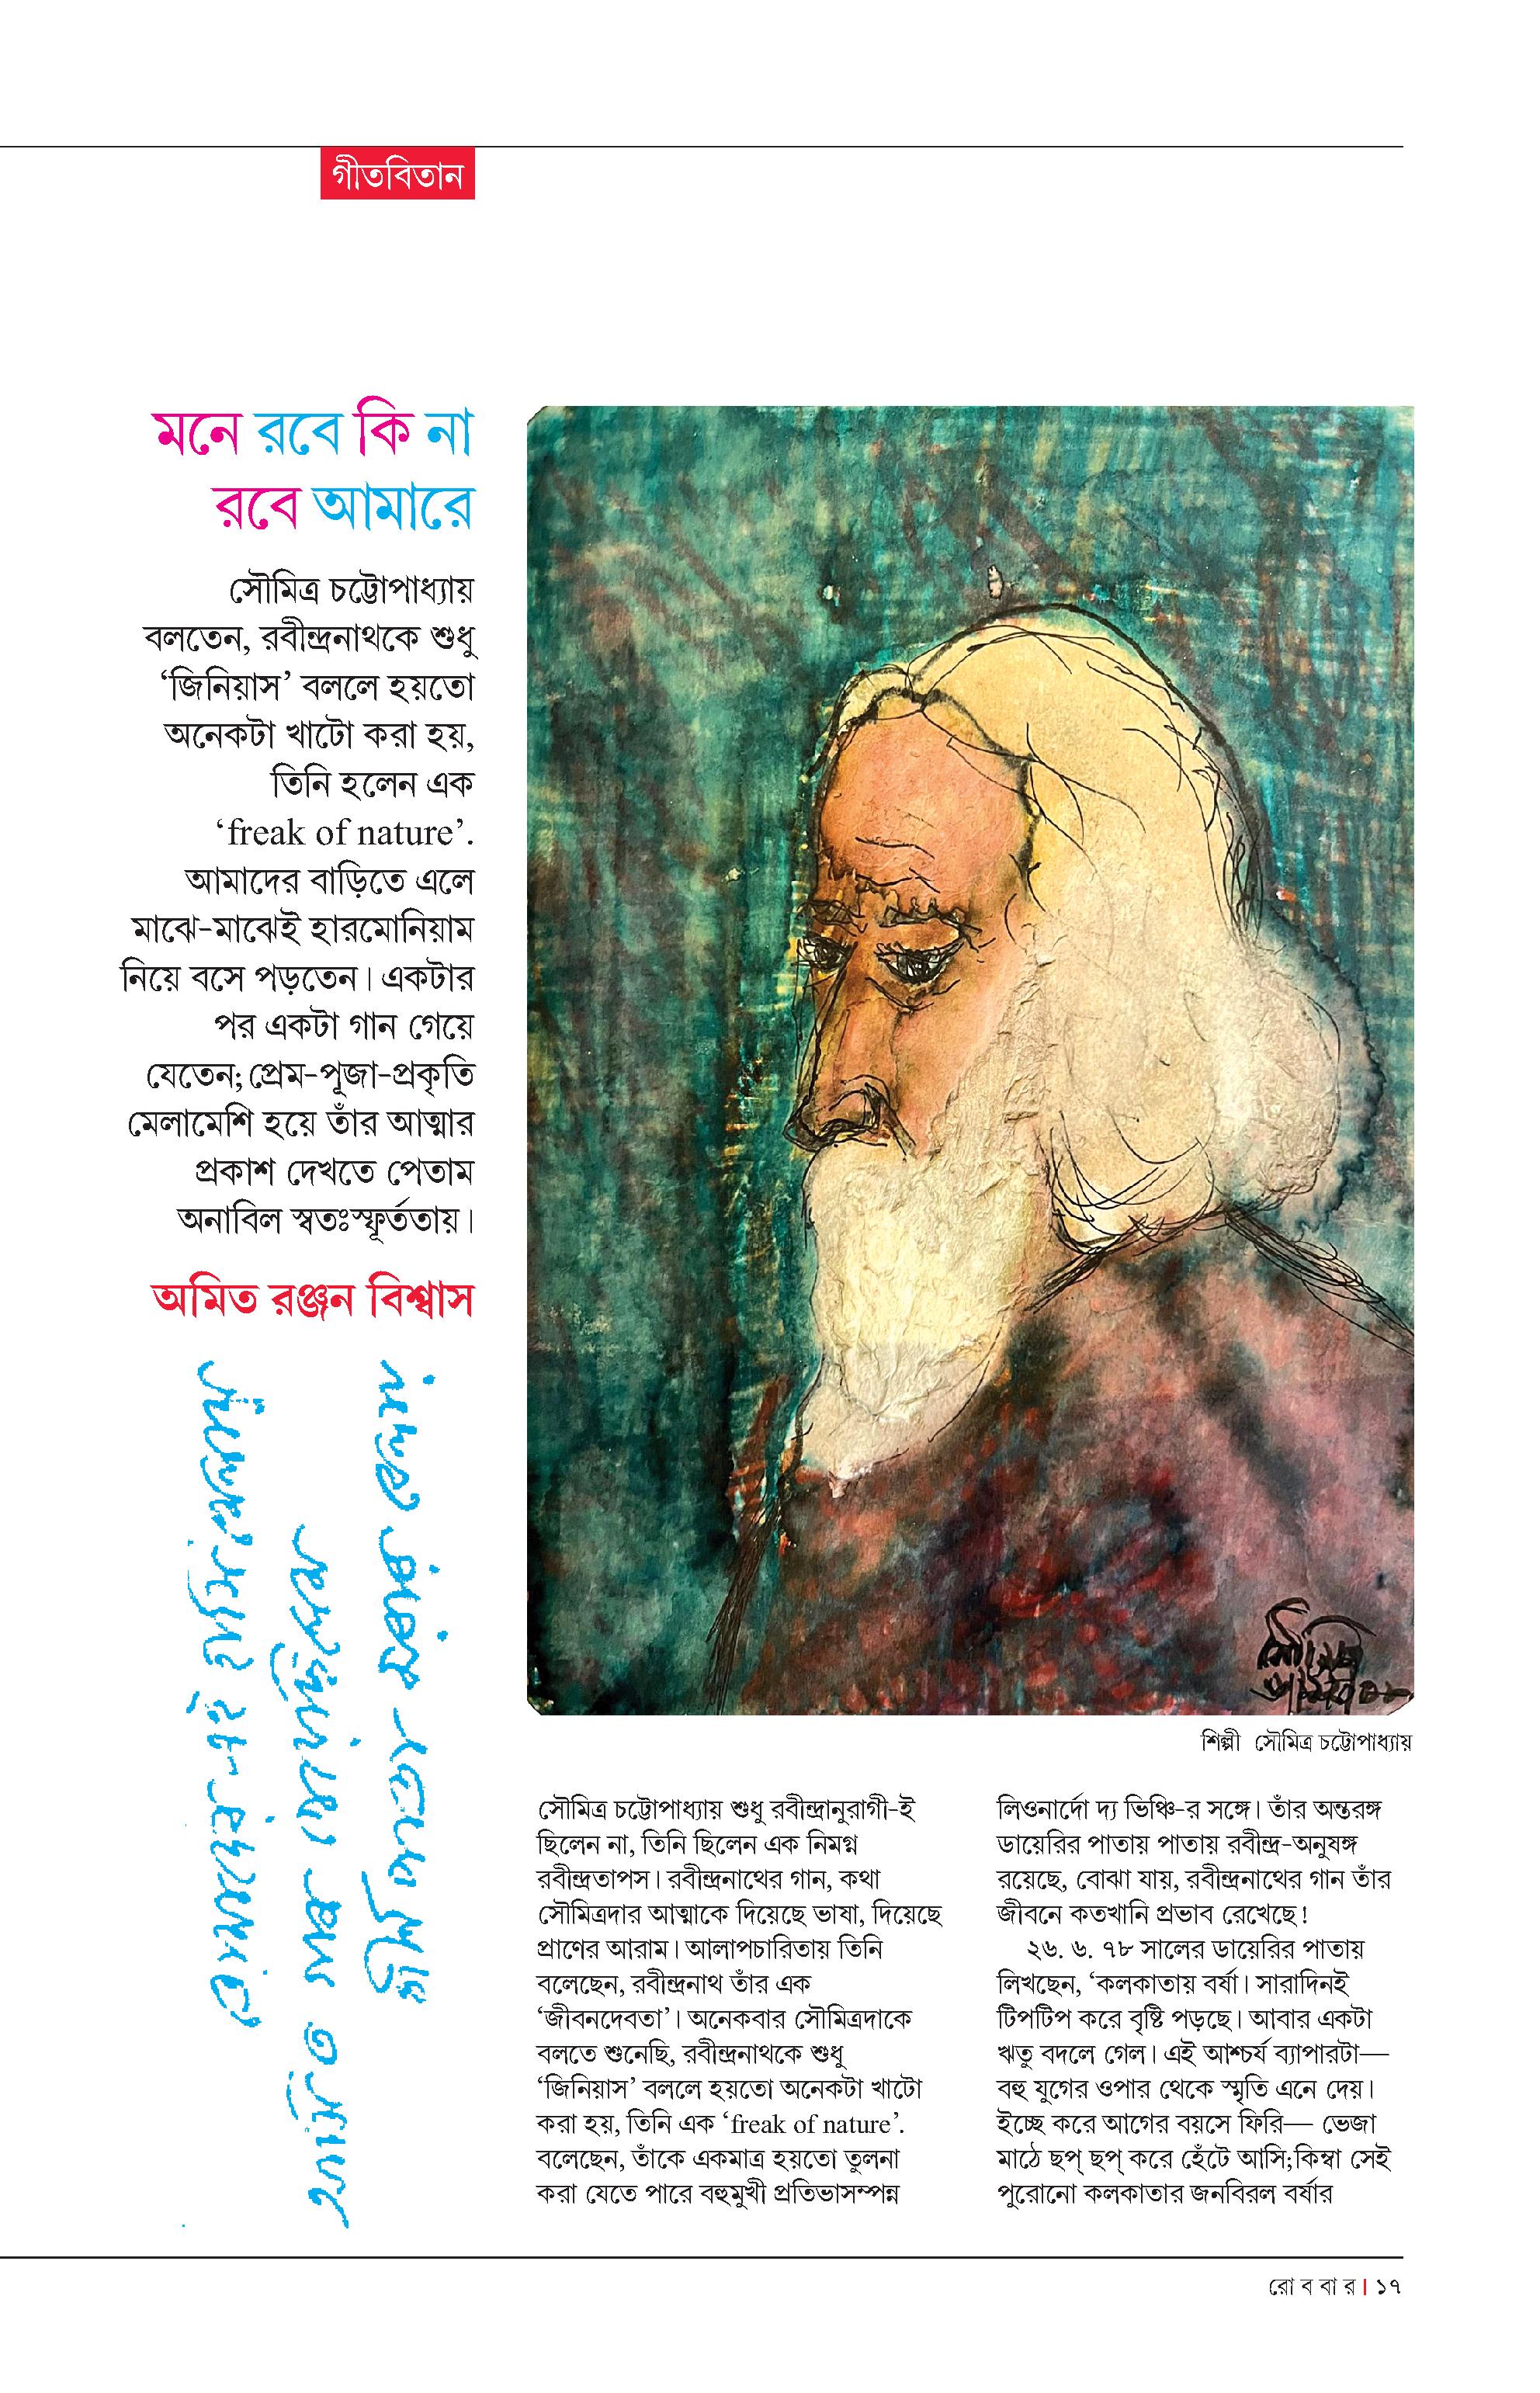 গীতবিতান
মনে রবে কি না
রবে আমারে
সৌমিত্র চট্টোপাধ্যায়
বলতেন, রবীন্দ্রনাথকে শুধু
‘জিনিয়াস’ বললে হয়তো
অনেকটা খাটো করা হয়,
তিনি হলেন এক
‘freak of nature’.
আমাদের বাড়িতে এলে
মাঝে-মাঝেই হারমোনিয়াম
নিয়ে বসে পড়তেন। একটার
পর একটা গান গেয়ে
যেতেন; প্রেম-পূজা-প্রকৃতি
মেলামেশি হয়ে তাঁর আত্মার
প্রকাশ দেখতে পেতাম
অনাবিল স্বতঃস্ফূর্ততায়।
অমিত রঞ্জন বিশ্বাস
তোমাদের-এই হাসিখেলায়
আমি গান গেয়েছিলেম
জীর্ণ পাতা ঝরার বেলায়
শিল্পী সৌমিত্র চট্টোপাধ্যায়
সৌমিত্র চট্টোপাধ্যায় শুধু রবীন্দ্রানুরাগী-ই
ছিলেন না, তিনি ছিলেন এক নিমগ্ন
রবীন্দ্রতাপস। রবীন্দ্রনাথের গান, কথা
সৌমিত্রদার আত্মাকে দিয়েছে ভাষা, দিয়েছে
প্রাণের আরাম। আলাপচারিতায় তিনি
বলেছেন, রবীন্দ্রনাথ তাঁর এক
‘জীবনদেবতা’। অনেকবার সৌমিত্রদাকে
বলতে শুনেছি, রবীন্দ্রনাথকে শুধু
‘জিনিয়াস’ বললে হয়তো অনেকটা খাটো
করা হয়, তিনি এক ‘freak of nature’.
বলেছেন, তাঁকে একমাত্র হয়তো তুলনা
করা যেতে পারে বহুমুখী প্রতিভাসম্পন্ন
লিওনার্দো দ্য ভিঞ্চি-র সঙ্গে। তাঁর অন্তরঙ্গ
ডায়েরির পাতায় পাতায় রবীন্দ্র-অনুষঙ্গ
রয়েছে, বোঝা যায়, রবীন্দ্রনাথের গান তাঁর
জীবনে কতখানি প্রভাব রেখেছে!
২৬. ৬. ৭৮ সালের ডায়েরির পাতায়
লিখছেন, ‘কলকাতায় বর্ষা। সারাদিনই
টিপটিপ করে বৃষ্টি পড়ছে। আবার একটা
ঋতু বদলে গেল। এই আশ্চর্য ব্যাপারটা—
বহু যুগের ওপার থেকে স্মৃতি এনে দেয়।
ইচ্ছে করে আগের বয়সে ফিরি— ভেজা
মাঠে ছপ্ ছপ্ করে হেঁটে আসি; কিম্বা সেই
পুরোনো কলকাতার জনবিরল বর্ষার
রোববার। ১৭